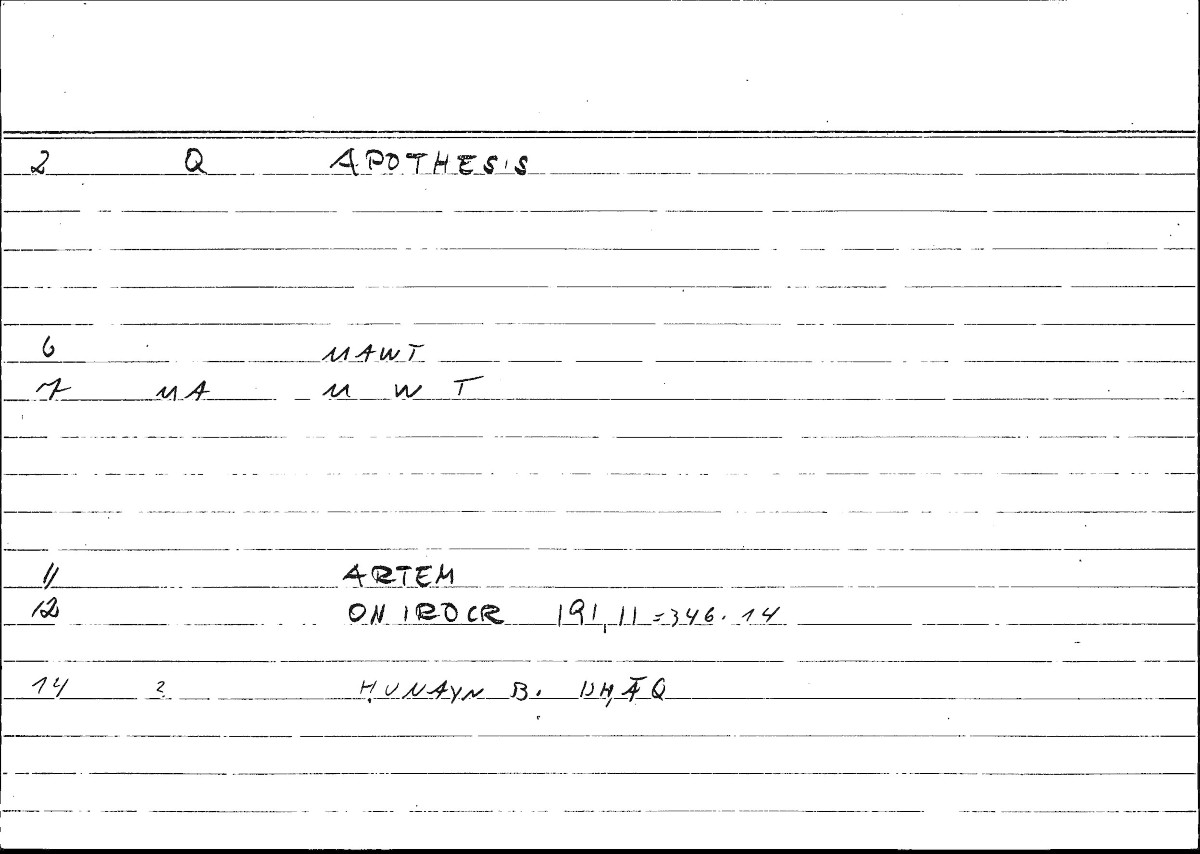 2 Q APOTHESIS
6 MAWT
7 MA M W T
11 ARTEM
12 ONIROCR 191,11=346.14
14 2 ḤUNAYN B.